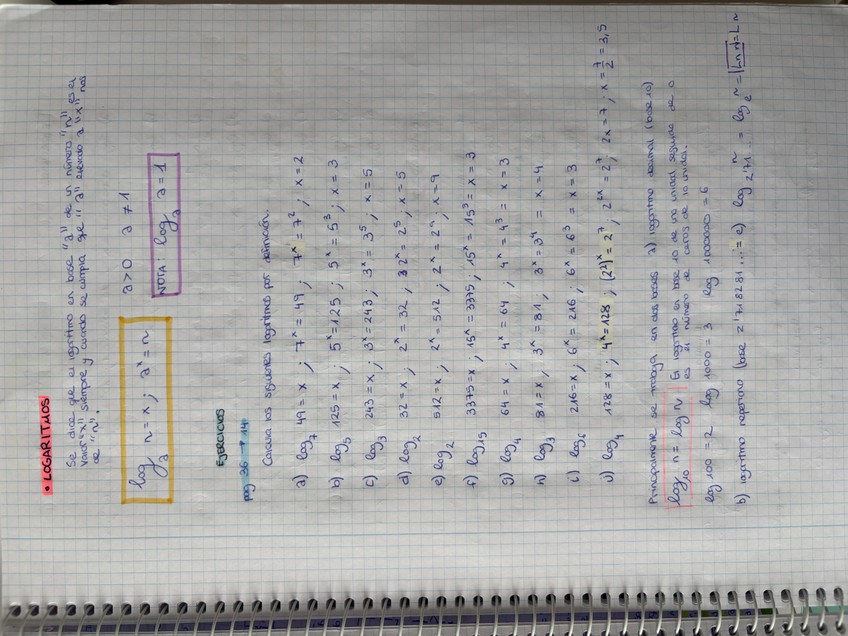 • LOGARITMOS
Se dice que el logaritmo en base "a" de un número "n" es el
valor "x" siempre y cuando se cumpla que "a" elevado a "x" nos
de "n".
log_a n = x ; a^x = n
a > 0 a ≠ 1
NOTA: log_a a = 1
EJERCICIOS
pag 36 → 14
Calcula los siguientes logaritmos por definición.
a) log_7 49 = x ; 7^x = 49 ; 7^x = 7^2 ; x = 2
b) log_5 125 = x ; 5^x = 125 ; 5^x = 5^3 ; x = 3
c) log_3 243 = x ; 3^x = 243 ; 3^x = 3^5 ; x = 5
d) log_2 32 = x ; 2^x = 32 ; 2^x = 2^5 ; x = 5
e) log_2 512 = x ; 2^x = 512 ; 2^x = 2^9 ; x = 9
f) log_15 3375 = x ; 15^x = 3375 ; 15^x = 15^3 = x = 3
g) log_4 64 = x ; 4^x = 64 ; 4^x = 4^3 = x = 3
h) log_3 81 = x ; 3^x = 81 ; 3^x = 3^4 = x = 4
i) log_6 216 = x ; 6^x = 216 ; 6^x = 6^3 = x = 3
j) log_4 128 = x ; 4^x = 128 ; (2^2)^x = 2^7 ; 2^2x = 2^7 ; 2x = 7 ; x = 7/2 = 3,5
Principalmente se trabaja en dos bases a) logaritmo decimal (base 10)
log_10 n = log n El logaritmo en base 10 de una unidad seguida de 0
es el número de ceros de la unidad.
log 100 = 2 log 1000 = 3 log 1000000 = 6
b) logaritmo neperiano (base = 2'718281... = e) log_2'71... n = log_e n = Ln n = L n